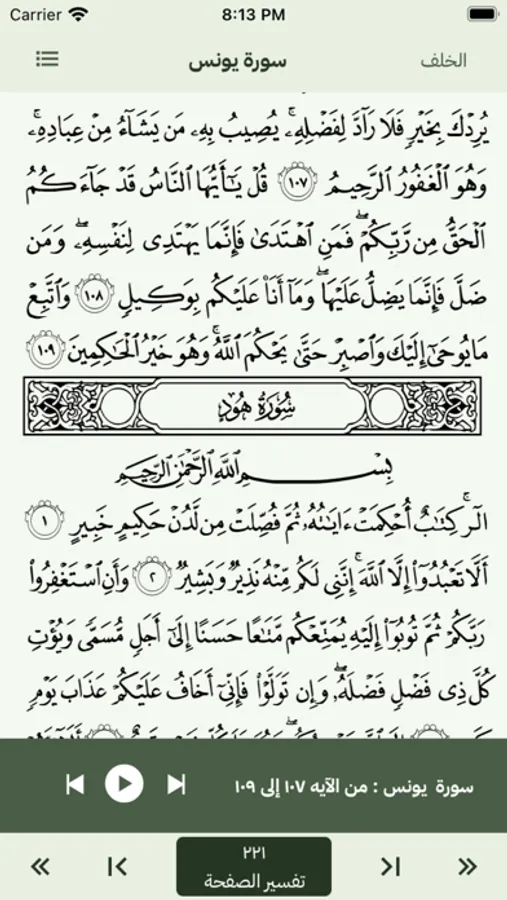 Carrier 8:13 PM
الخلف سورة يونس
يُرِدْكَ بِخَيْرٍ فَلَا رَآدَّ لِفَضْلِهِۦۚ يُصِيبُ بِهِۦ مَن يَشَآءُ مِنْ عِبَادِهِۦۚ
وَهُوَ ٱلْغَفُورُ ٱلرَّحِيمُ ١٠٧ قُلْ يَٰٓأَيُّهَا ٱلنَّاسُ قَدْ جَآءَكُمُ
ٱلْحَقُّ مِن رَّبِّكُمْۖ فَمَنِ ٱهْتَدَىٰ فَإِنَّمَا يَهْتَدِى لِنَفْسِهِۦۖ وَمَن
ضَلَّ فَإِنَّمَا يَضِلُّ عَلَيْهَاۖ وَمَآ أَنَا۠ عَلَيْكُم بِوَكِيلٍ ١٠٨ وَٱتَّبِعْ
مَا يُوحَىٰٓ إِلَيْكَ وَٱصْبِرْ حَتَّىٰ يَحْكُمَ ٱللَّهُۚ وَهُوَ خَيْرُ ٱلْحَٰكِمِينَ ١٠٩
سُورَةُ هُودٍ
بِسْمِ ٱللَّهِ ٱلرَّحْمَٰنِ ٱلرَّحِيمِ
الٓرۚ كِتَٰبٌ أُحْكِمَتْ ءَايَٰتُهُۥ ثُمَّ فُصِّلَتْ مِن لَّدُنْ حَكِيمٍ خَبِيرٍ ١
أَلَّا تَعْبُدُوٓا۟ إِلَّا ٱللَّهَۚ إِنَّنِى لَكُم مِّنْهُ نَذِيرٌ وَبَشِيرٌ ٢ وَأَنِ ٱسْتَغْفِرُوا۟
رَبَّكُمْ ثُمَّ تُوبُوٓا۟ إِلَيْهِ يُمَتِّعْكُم مَّتَٰعًا حَسَنًا إِلَىٰٓ أَجَلٍ مُّسَمًّى وَيُؤْتِ
كُلَّ ذِى فَضْلٍ فَضْلَهُۥۖ وَإِن تَوَلَّوْا۟ فَإِنِّىٓ أَخَافُ عَلَيْكُمْ عَذَابَ يَوْمٍ
سورة يونس : من الآيه ١٠٧ إلى ١٠٩
٢٢١
تفسير الصفحة